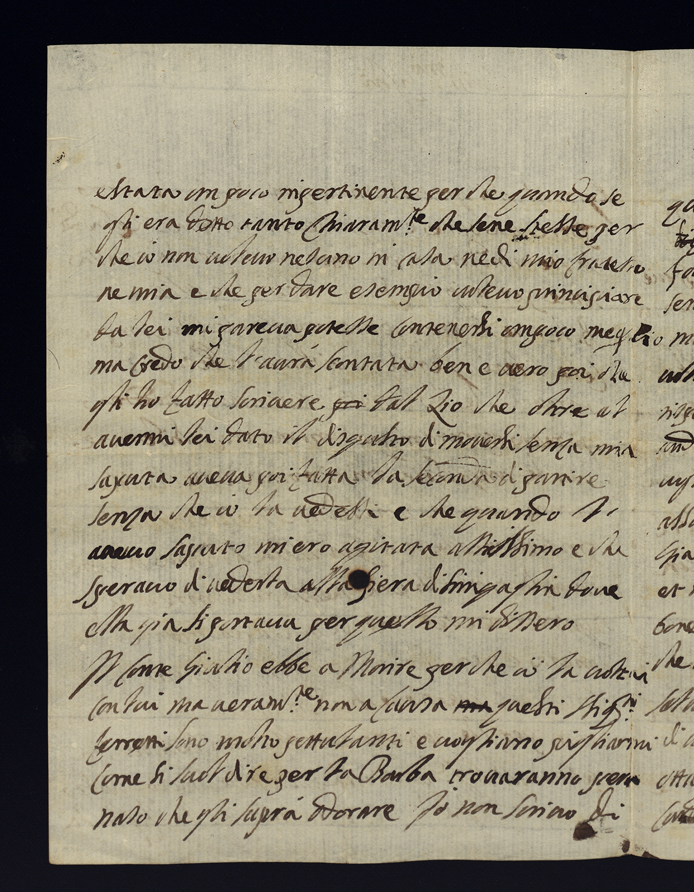 e stata un poco impertinente per che quando se
gli era detto tanto Chiaram.te che sene stesse per
che io non volevo nessuno in casa ne di mio fratello
ne mia e che per dare esempio volevo principiare
da lei mi pareva potesse contenersi un poco meglio
ma credo che l'avrà scontata bene e vero poi che
gli ho fatto scrivere poi dal Zio che oltre al
avermi lei dato il disgusto di moversi senza mia
saputa aveva poi fatta la seconda di partire
senza che io la vedessi e che quando l'
avevo saputo mi ero agitata assaissimo e che
speravo di vederla alla fiera di Sinigaglia dove
ella gia si portava per quello mi dissero
Il Conte Giulio ebbe a Morire per che io la volevi
con lui ma veram.te non a causa questi
sono molto petulanti e vogliano pigliarmi
come si suol dire per la Barba trovaranno però
naso che gli saprà odorare Io non scrivo di